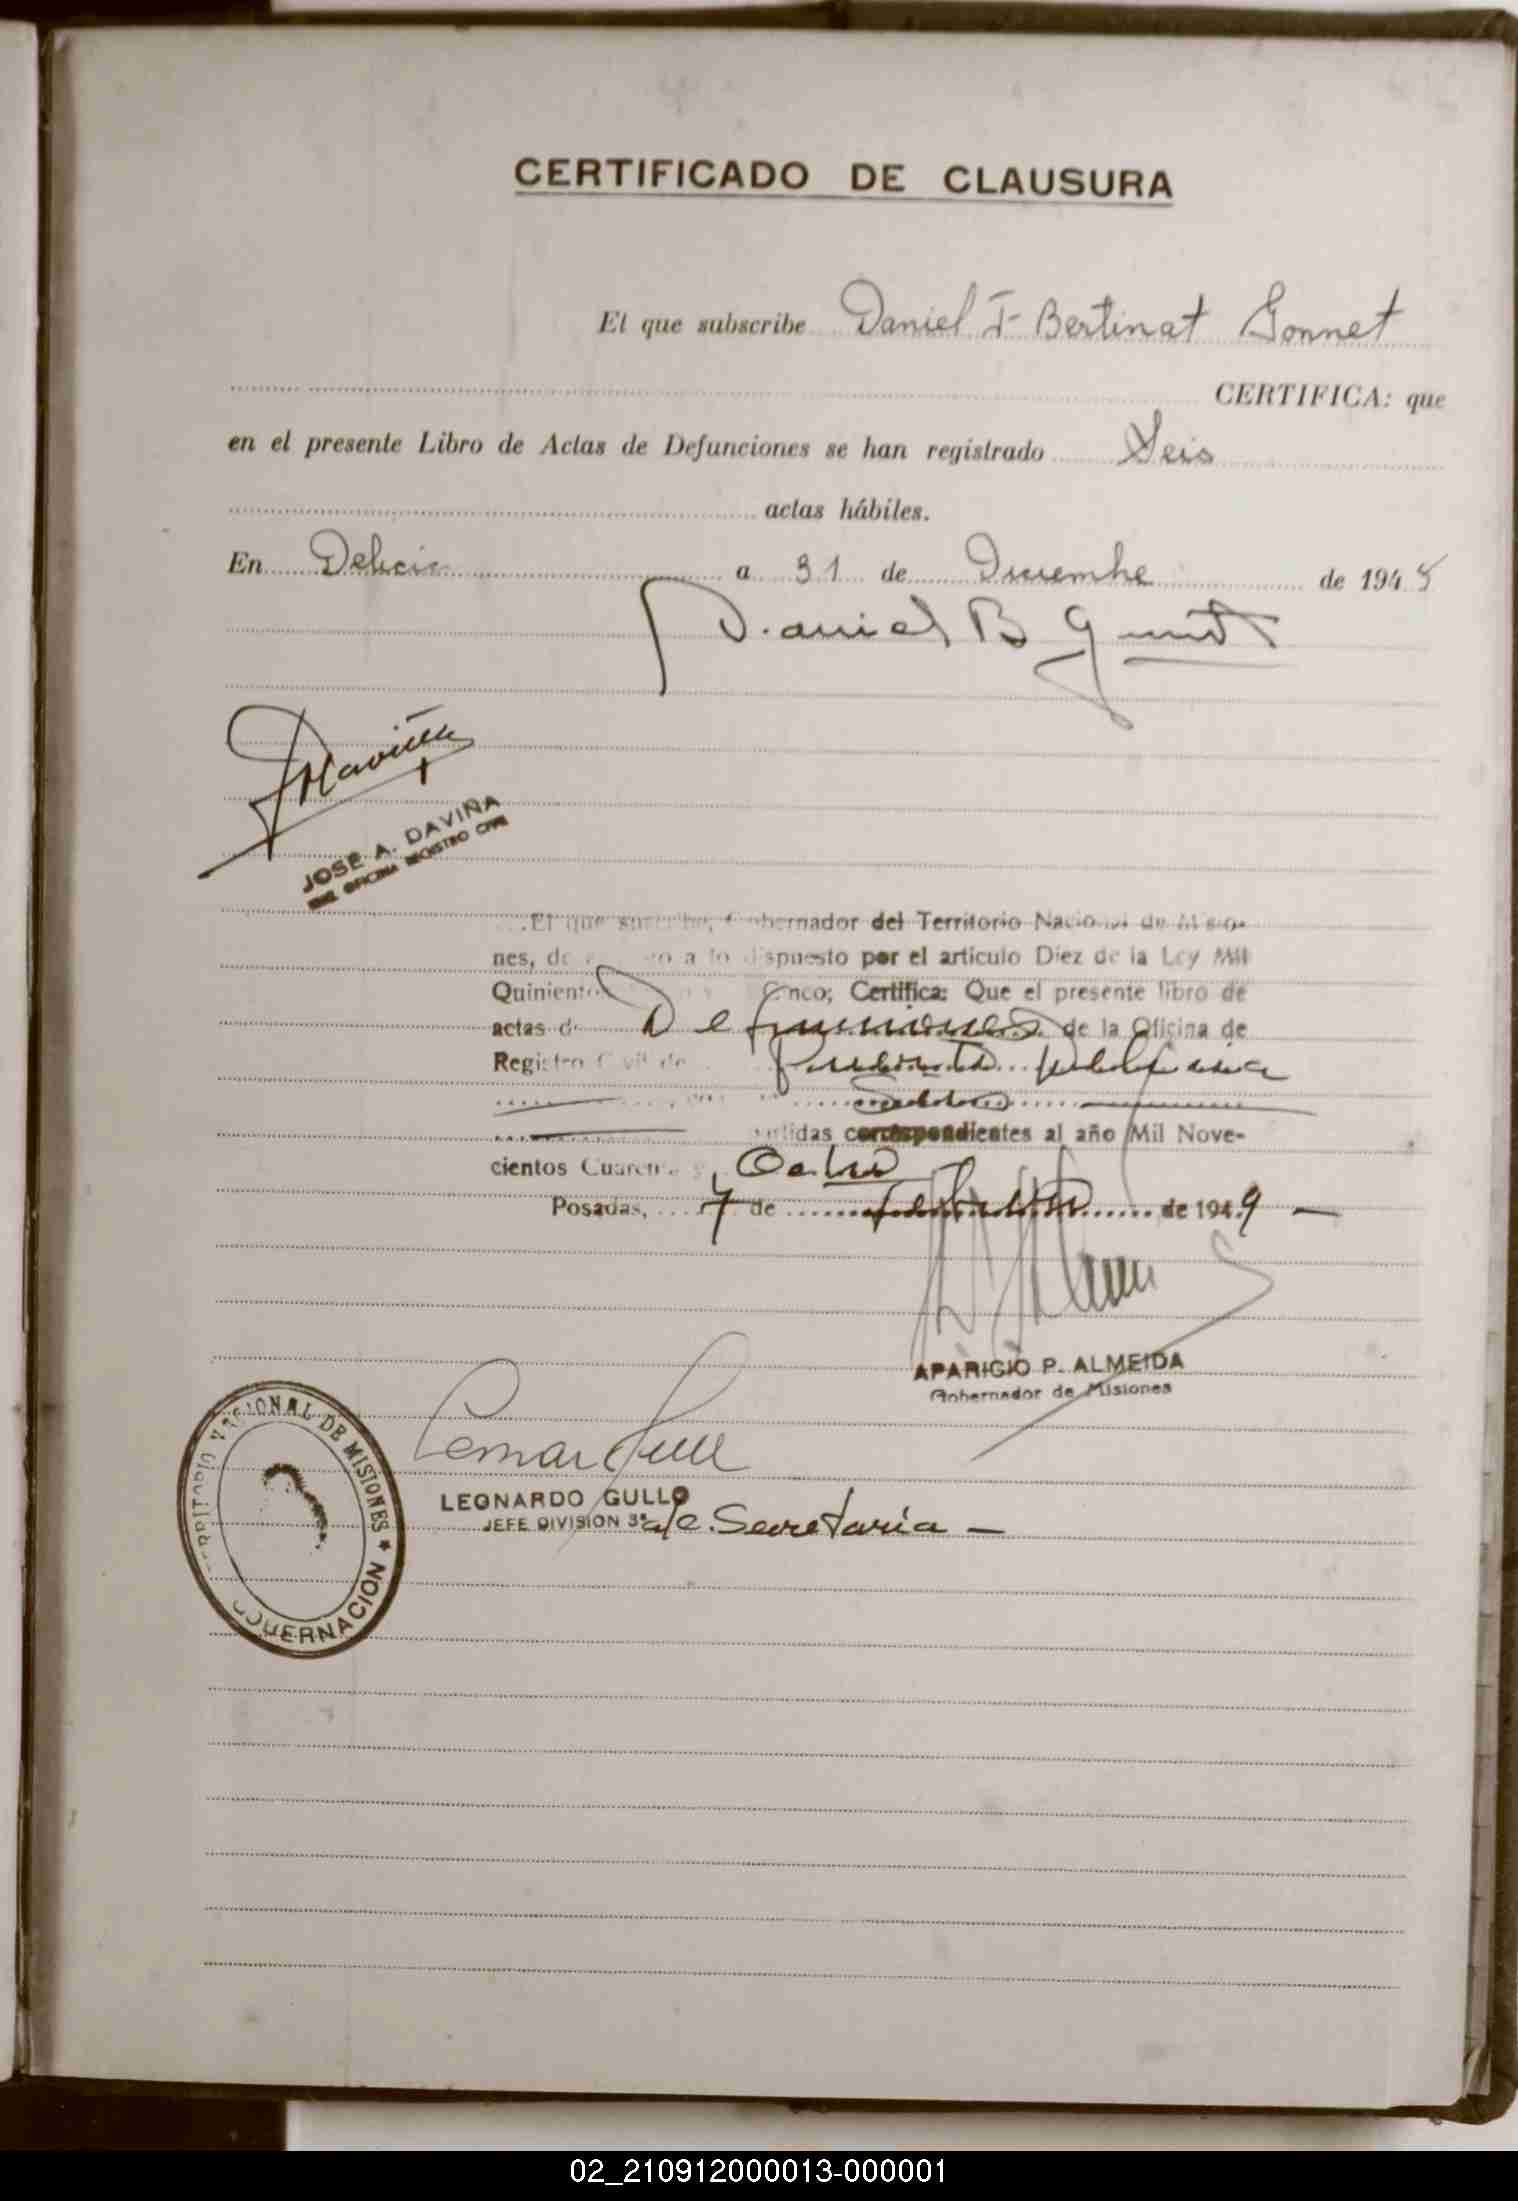 CERTIFICADO DE CLAUSURA
El que subscribe Daniel F Bertinat Gonnet
CERTIFICA: que
en el presente Libro de Actas de Defunciones se han registrado Seis
actas hábiles.
En Delicia a 31 de Diciembre de 1948
Daniel B Gonnet
JOSE A. DAVIÑA
JEFE OFICINA REGISTRO CIVIL
El que suscribe, Gobernador del Territorio Nacional de Misio-
nes, de a lo dispuesto por el artículo Diez de la Ley Mil
Quinientos Cinco; Certifica: Que el presente libro de
actas de Defunciones de la Oficina de
Registro Civil de Puerto Delicia
partidas correspondientes al año Mil Nove-
cientos Cuarenta y Ocho
Posadas, 7 de febrero de 1949 —
APARICIO P. ALMEIDA
Gobernador de Misiones
LEONARDO GULLO
JEFE DIVISION 3ª a/c. Secretaría —
TERRITORIO NACIONAL DE MISIONES ★
GOBERNACION
02_210912000013-000001